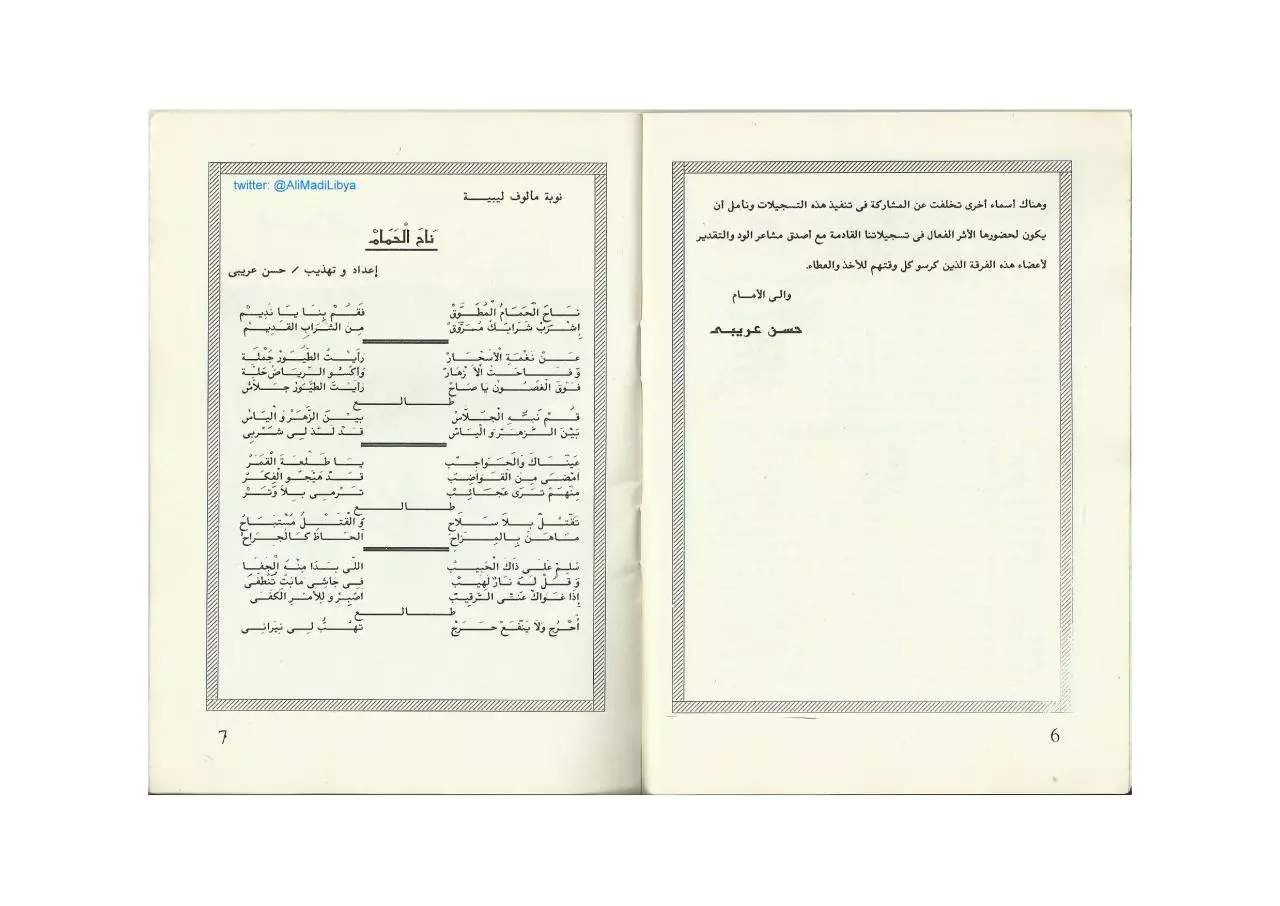 وهناك أسماء أخرى تخلفت عن المشاركة فى تنفيذ هذه التسجيلات ونأمل أن
يكون لحضورها الأثر الفعال فى تسجيلاتنا القادمة مع أصدق مشاعر الود والتقدير
لأعضاء هذه الفرقة الذين كرسو كل وقتهم للأخذ والعطاء.
والى الأمام
حسن عريبى
6
twitter: @AliMadiLibya
نوبة مألوف ليبية
نَاحَ الْحَمَامْ
إعداد و تهذيب / حسن عريبى
نَاحَ الْحَمَامُ الْمُطَوَّقْ فَقُمْ بِنَا يَا نَدِيمْ
إِشْرَبْ شَرَابَكْ مُرَوَّقْ مِنَ الشَّرَابِ القَدِيمْ
عَنْ نَغْمَةِ الْأَسْحَارْ رَأَيْتُ الطُّيُورْ جُمْلَة
وَفَاحَتْ الْأَزْهَارْ وَاكْسُو الرِّيَاضْ حَلَّة
فَوْقَ الْغُصُونْ يَا صَاحْ رَأَيْتَ الطُّيُورْ جَلَّاسْ
طالع
قُمْ نَبِّهِ الْجَلَّاسْ بَيْنَ الزَّهَرْ وَالْيَاسْ
بَيْنَ الزَّهَرْ وَالْيَاسْ قَدْ لَذْ لِى شَرْبِى
عَيْنَاكْ وَالْحَوَاجِبْ يَا طَلْعَةَ الْقَمَرْ
أَمْضَى مِنَ الْقَوَاضِبْ قَدْ هَيَّجُو الْفِكَرْ
مِنْهُمْ تَرَى عَجَائِبْ تَرْمِى بِلَا وَتَرْ
طالع
تَقْتُلْ بِلَا سَلَاحْ وَالْقَتْلُ مُسْتَبَاحُ
مَاهُنَ بِالمِزَاحِ الْحَاظُ كَالْجِرَاحْ
سَلِّمْ عَلَى ذَاكَ الْحَبِيبْ اللّى بَدَا مِنَّهْ الْجَفَا
وَقُلْ لَهْ نَارْ لَهِيبْ فِى جَاشِى مَابَتْ تَنْطَفَى
إِذَا غَوَاكْ عَنِّى الرَّقِيبْ اصْبِرْ وَلِلْأَمْرِ الْكَفَى
طالع
أُحْرُجْ وَلَا يَنْفَعْ حَرَجْ تَهُبُّ لِى نِيرَانِى
7